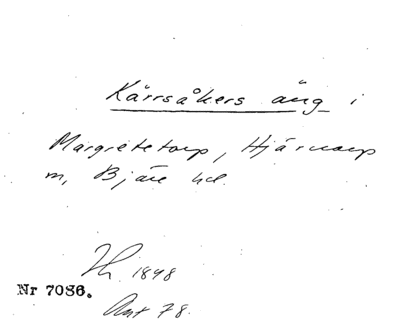 Kärrsåkers äng i
Margretetorp, Hjärnarp
m, Bjäre hd.
1848
Nr 7086.
Ant 78.